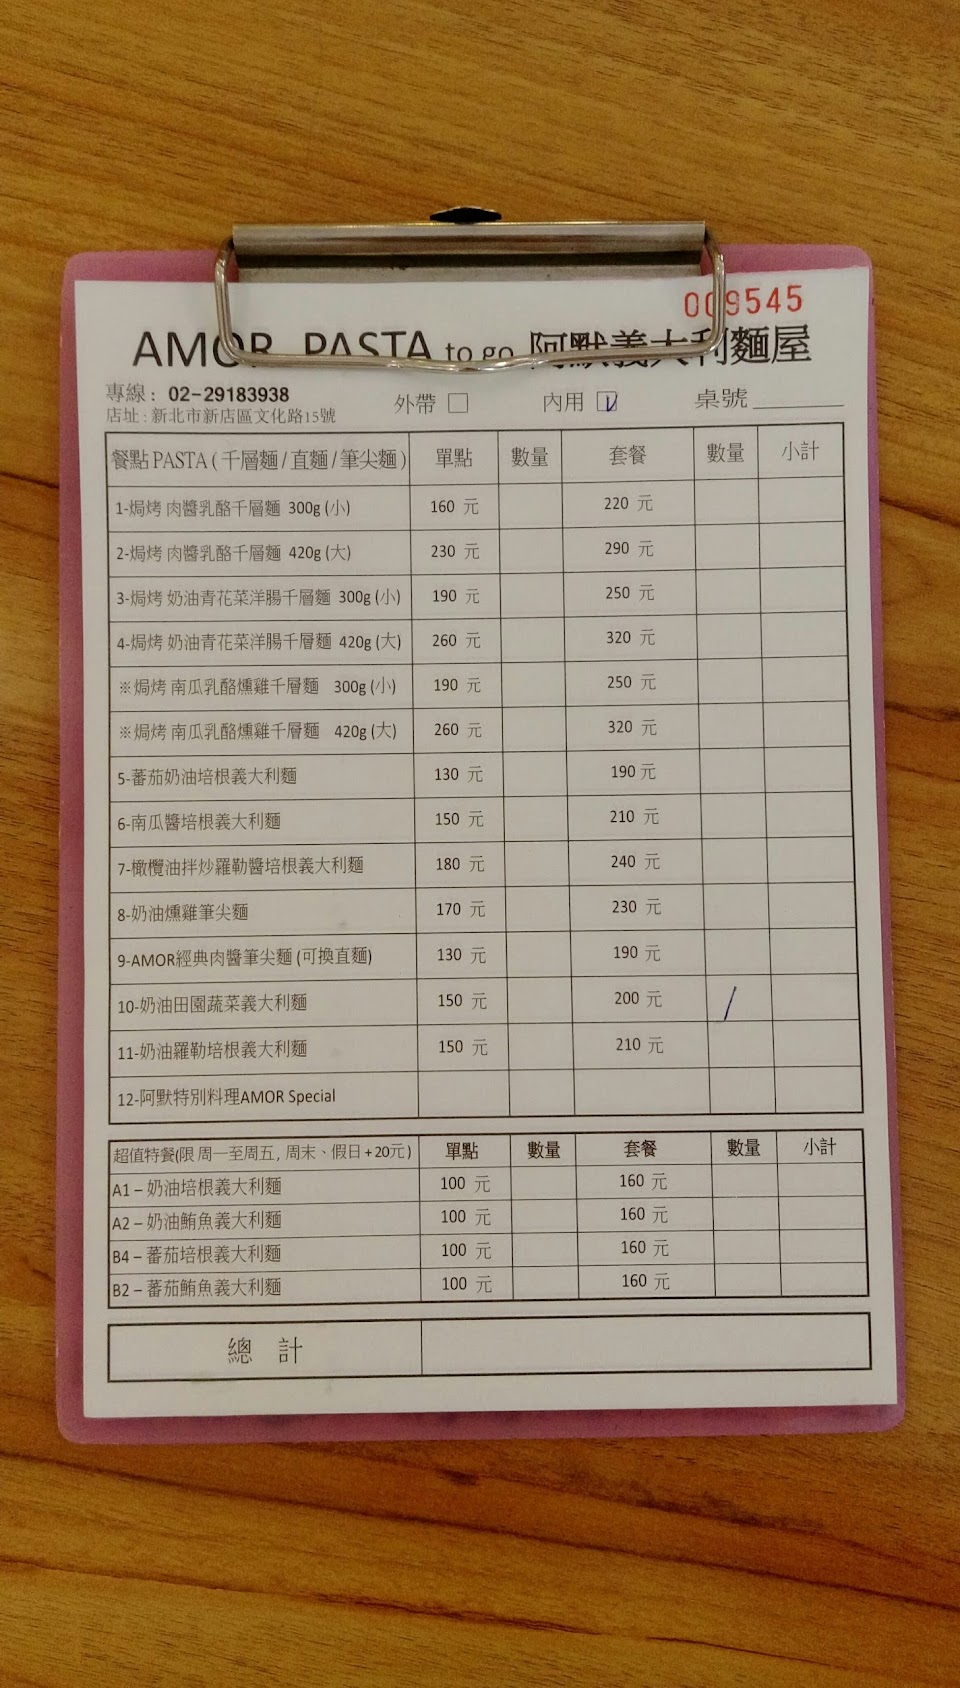 009545
AMOR PASTA to go 阿默義大利麵屋
專線： 02-29183938
店址 : 新北市新店區文化路15號
外帶 □ 內用 ☑ 桌號
餐點 PASTA ( 千層麵 / 直麵 / 筆尖麵 ) 單點 數量 套餐 數量 小計
1-焗烤 肉醬乳酪千層麵 300g (小) 160 元 220 元
2-焗烤 肉醬乳酪千層麵 420g (大) 230 元 290 元
3-焗烤 奶油青花菜洋腸千層麵 300g (小) 190 元 250 元
4-焗烤 奶油青花菜洋腸千層麵 420g (大) 260 元 320 元
※焗烤 南瓜乳酪燻雞千層麵 300g (小) 190 元 250 元
※焗烤 南瓜乳酪燻雞千層麵 420g (大) 260 元 320 元
5-蕃茄奶油培根義大利麵 130 元 190 元
6-南瓜醬培根義大利麵 150 元 210 元
7-橄欖油拌炒羅勒醬培根義大利麵 180 元 240 元
8-奶油燻雞筆尖麵 170 元 230 元
9-AMOR經典肉醬筆尖麵 (可換直麵) 130 元 190 元
10-奶油田園蔬菜義大利麵 150 元 200 元 /
11-奶油羅勒培根義大利麵 150 元 210 元
12-阿默特別料理AMOR Special
超值特餐(限 周一至周五 , 周末、假日 + 20元 ) 單點 數量 套餐 數量 小計
A1 – 奶油培根義大利麵 100 元 160 元
A2 – 奶油鮪魚義大利麵 100 元 160 元
B4 – 蕃茄培根義大利麵 100 元 160 元
B2 – 蕃茄鮪魚義大利麵 100 元 160 元
總 計